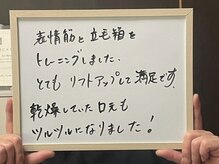 表情筋と立毛筋を
トレーニングしました。
とても リフトアップして 満足です。
乾燥していた口元も
ツルツルになりました!